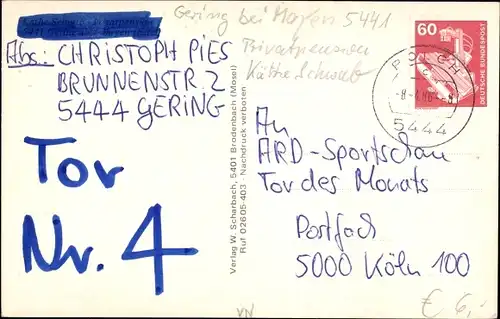 Gering bei Mayen 5441
Privatpension
Käthe Schwab
Abs: CHRISTOPH PIES
BRUNNENSTR. 2
5444 GERING
Tor
Nr. 4
Verlag W. Scharbach, 5401 Brodenbach (Mosel)
Ruf 02605-403 · Nachdruck verboten
60
DEUTSCHE BUNDESPOST
POLCH
5444
An
ARD-Sportschau
Tor des Monats
Postfach
5000 Köln 100
VN
€ 6,-